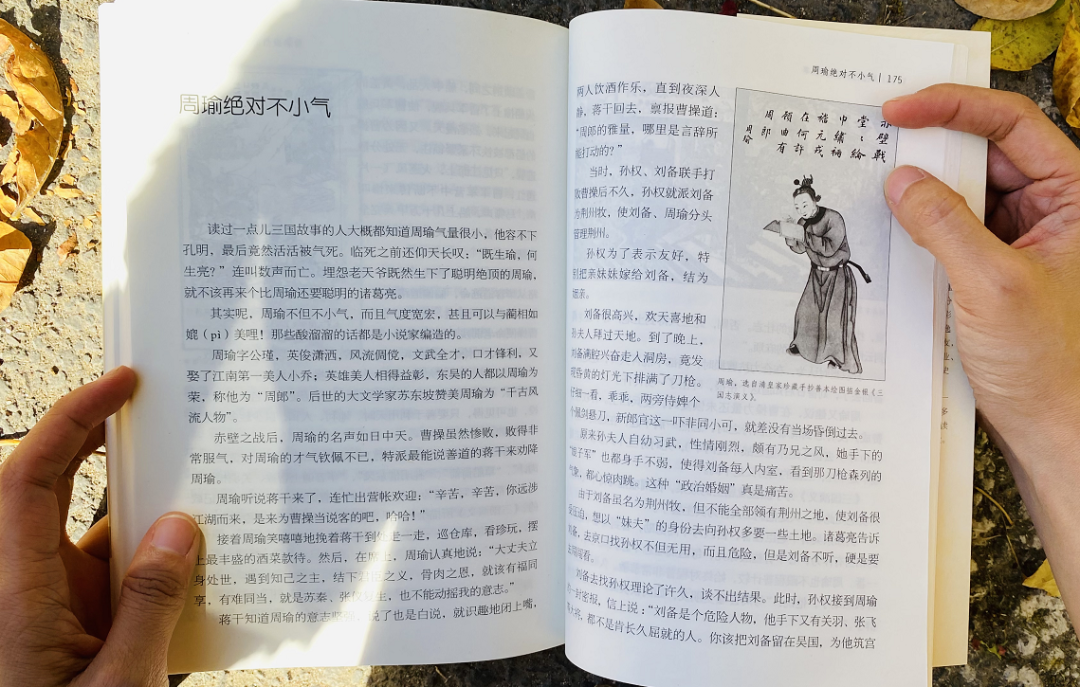 周瑜绝对不小气
读过一点儿三国故事的人大概都知道周瑜气量很小，他容不下
孔明，最后竟然活活被气死。临死之前还仰天长叹：“既生瑜，何
生亮？”连叫数声而亡。埋怨老天爷既然生下了聪明绝顶的周瑜，
就不该再来个比周瑜还要聪明的诸葛亮。
其实呢，周瑜不但不小气，而且气度宽宏，甚且可以与蔺相如
媲（pì）美哩！那些酸溜溜的话都是小说家编造的。
周瑜字公瑾，英俊潇洒，风流倜傥，文武全才，口才锋利，又
娶了江南第一美人小乔；英雄美人相得益彰，东吴的人都以周瑜为
荣，称他为“周郎”。后世的大文学家苏东坡赞美周瑜为“千古风
流人物”。
赤壁之战后，周瑜的名声如日中天。曹操虽然惨败，败得非
常服气，对周瑜的才气钦佩不已，特派最能说善道的蒋干来劝降
周瑜。
周瑜听说蒋干来了，连忙出营帐欢迎：“辛苦，辛苦，你远涉
江湖而来，是来为曹操当说客的吧，哈哈！”
接着周瑜笑嘻嘻地挽着蒋干到处走一走，巡仓库，看珍玩，摆
上最丰盛的酒菜款待。然后，在席上，周瑜认真地说：“大丈夫立
身处世，遇到知己之主，结下君臣之义，骨肉之恩，就该有福同
享，有难同当，就是苏秦、张仪再生，也不能动摇我的意志。”
蒋干知道周瑜的意志坚强，说了也是白说，就识趣地闭上嘴，
周瑜绝对不小气 | 175
两人饮酒作乐，直到夜深人
静，蒋干回去，禀报曹操道：
“周郎的雅量，哪里是言辞所
能打动的？”
当时，孙权、刘备联手打
败曹操后不久，孙权就派刘备
为荆州牧，使刘备、周瑜分头
管理荆州。
孙权为了表示友好，特
别把亲妹妹嫁给刘备，结为
姻亲。
刘备很高兴，欢天喜地和
孙夫人拜过天地。到了晚上，
刘备满腔兴奋走入洞房，竟发
现昏黄的灯光下排满了刀枪。
仔细一看，乖乖，两旁侍婢个
个佩剑悬刀，新郎官这一吓非同小可，就差没有当场昏倒过去。
原来孙夫人自幼习武，性情刚烈，颇有乃兄之风，她手下的
“娘子军”也都身手不弱，使得刘备每人内室，看到那刀枪森列的
气象，都心惊肉跳。这种“政治婚姻”真是痛苦。
由于刘备虽名为荆州牧，但不能全部领有荆州之地，使刘备很
受压迫，想以“妹夫”的身份去向孙权多要一些土地。诸葛亮告诉
刘备，去京口找孙权不但无用，而且危险，但是刘备不听，硬是要
去闯闯看。
刘备去找孙权理论了许久，谈不出结果。此时，孙权接到周瑜
的一封密报，信上说：“刘备是个危险人物，他手下又有关羽、张飞
等大将，都不是肯长久屈就的人。你该把刘备留在吴国，为他筑宫
赤壁戰
堂；綸
中繡裲
褶元戎
在何許
頻曲有
周郎
周瑜
周瑜，选自清皇室珍藏手抄善本绘图鉴金银《三
国志演义》。